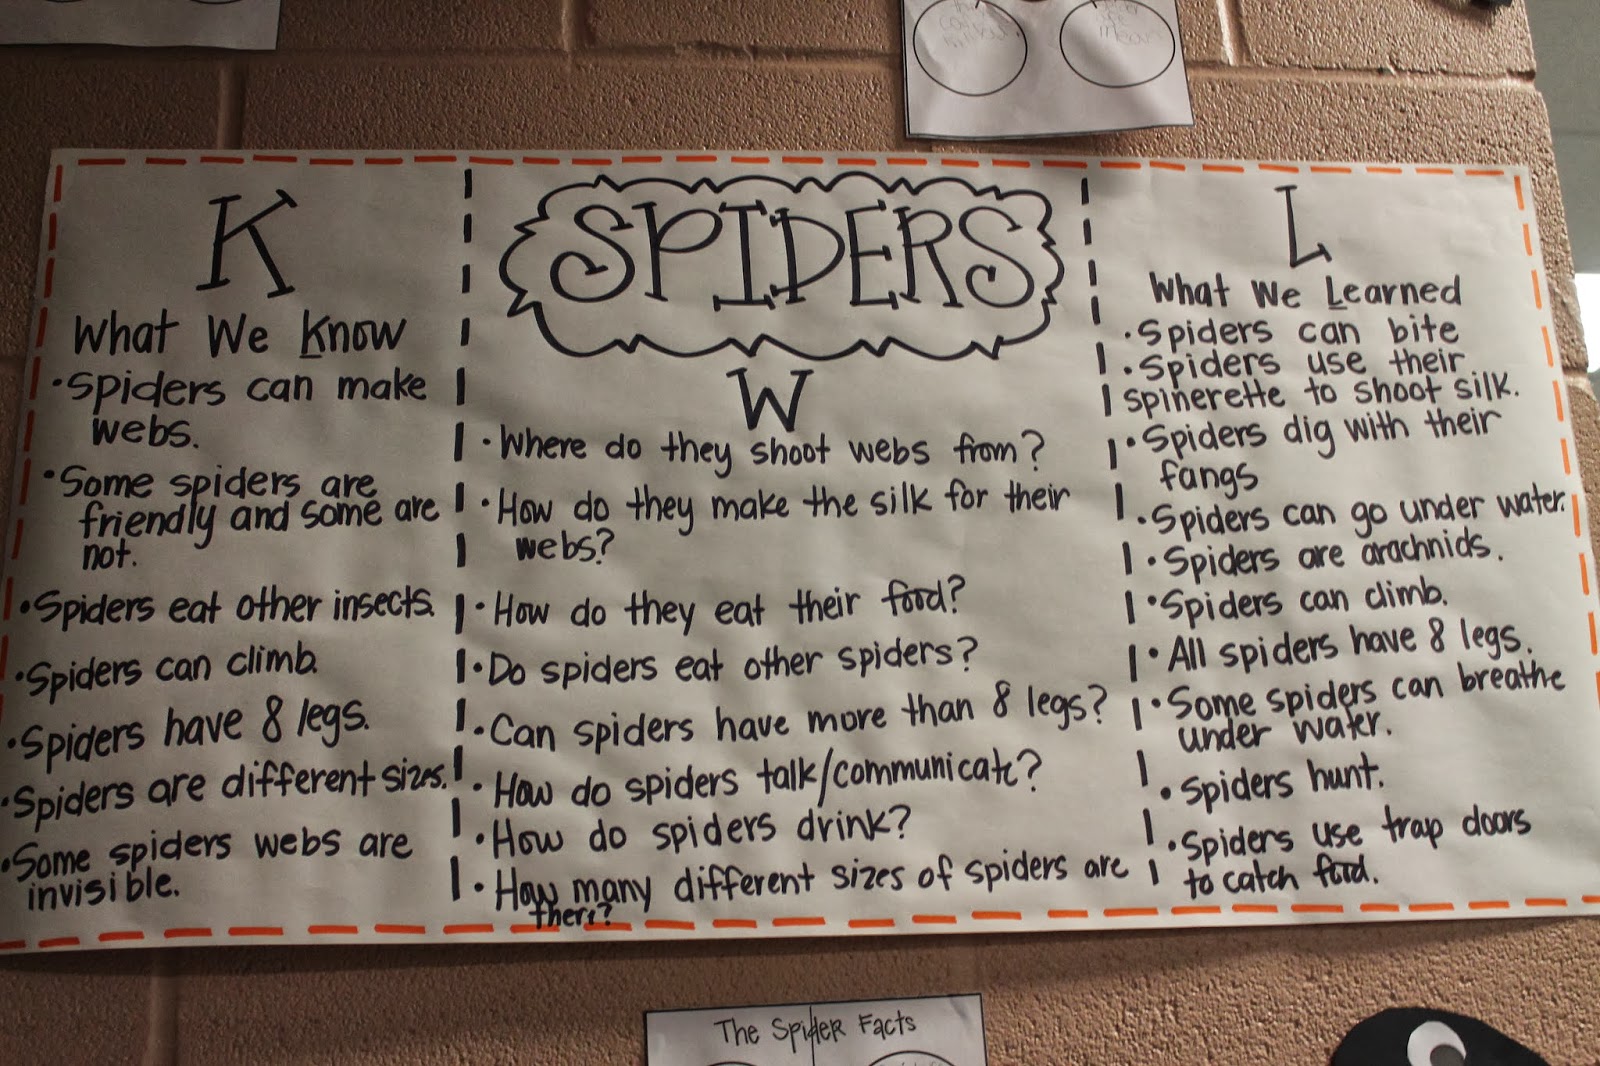 K
What We Know
•Spiders can make
webs.
•Some spiders are
friendly and some are
not.
•Spiders eat other insects.
•Spiders can climb.
•Spiders have 8 legs.
•Spiders are different sizes.
•Some spiders webs are
invisible.
SPIDERS
W
•Where do they shoot webs from?
•How do they make the silk for their
webs?
•How do they eat their food?
•Do spiders eat other spiders?
•Can spiders have more than 8 legs?
•How do spiders talk/communicate?
•How do spiders drink?
•How many different sizes of spiders are
there?
L
What We Learned
•Spiders can bite
•Spiders use their
spinerette to shoot silk.
•Spiders dig with their
fangs
•Spiders can go under water.
•Spiders are arachnids.
•Spiders can climb.
•All spiders have 8 legs.
•Some spiders can breathe
under water.
•Spiders hunt.
•Spiders use trap doors
to catch food.
The Spider Facts